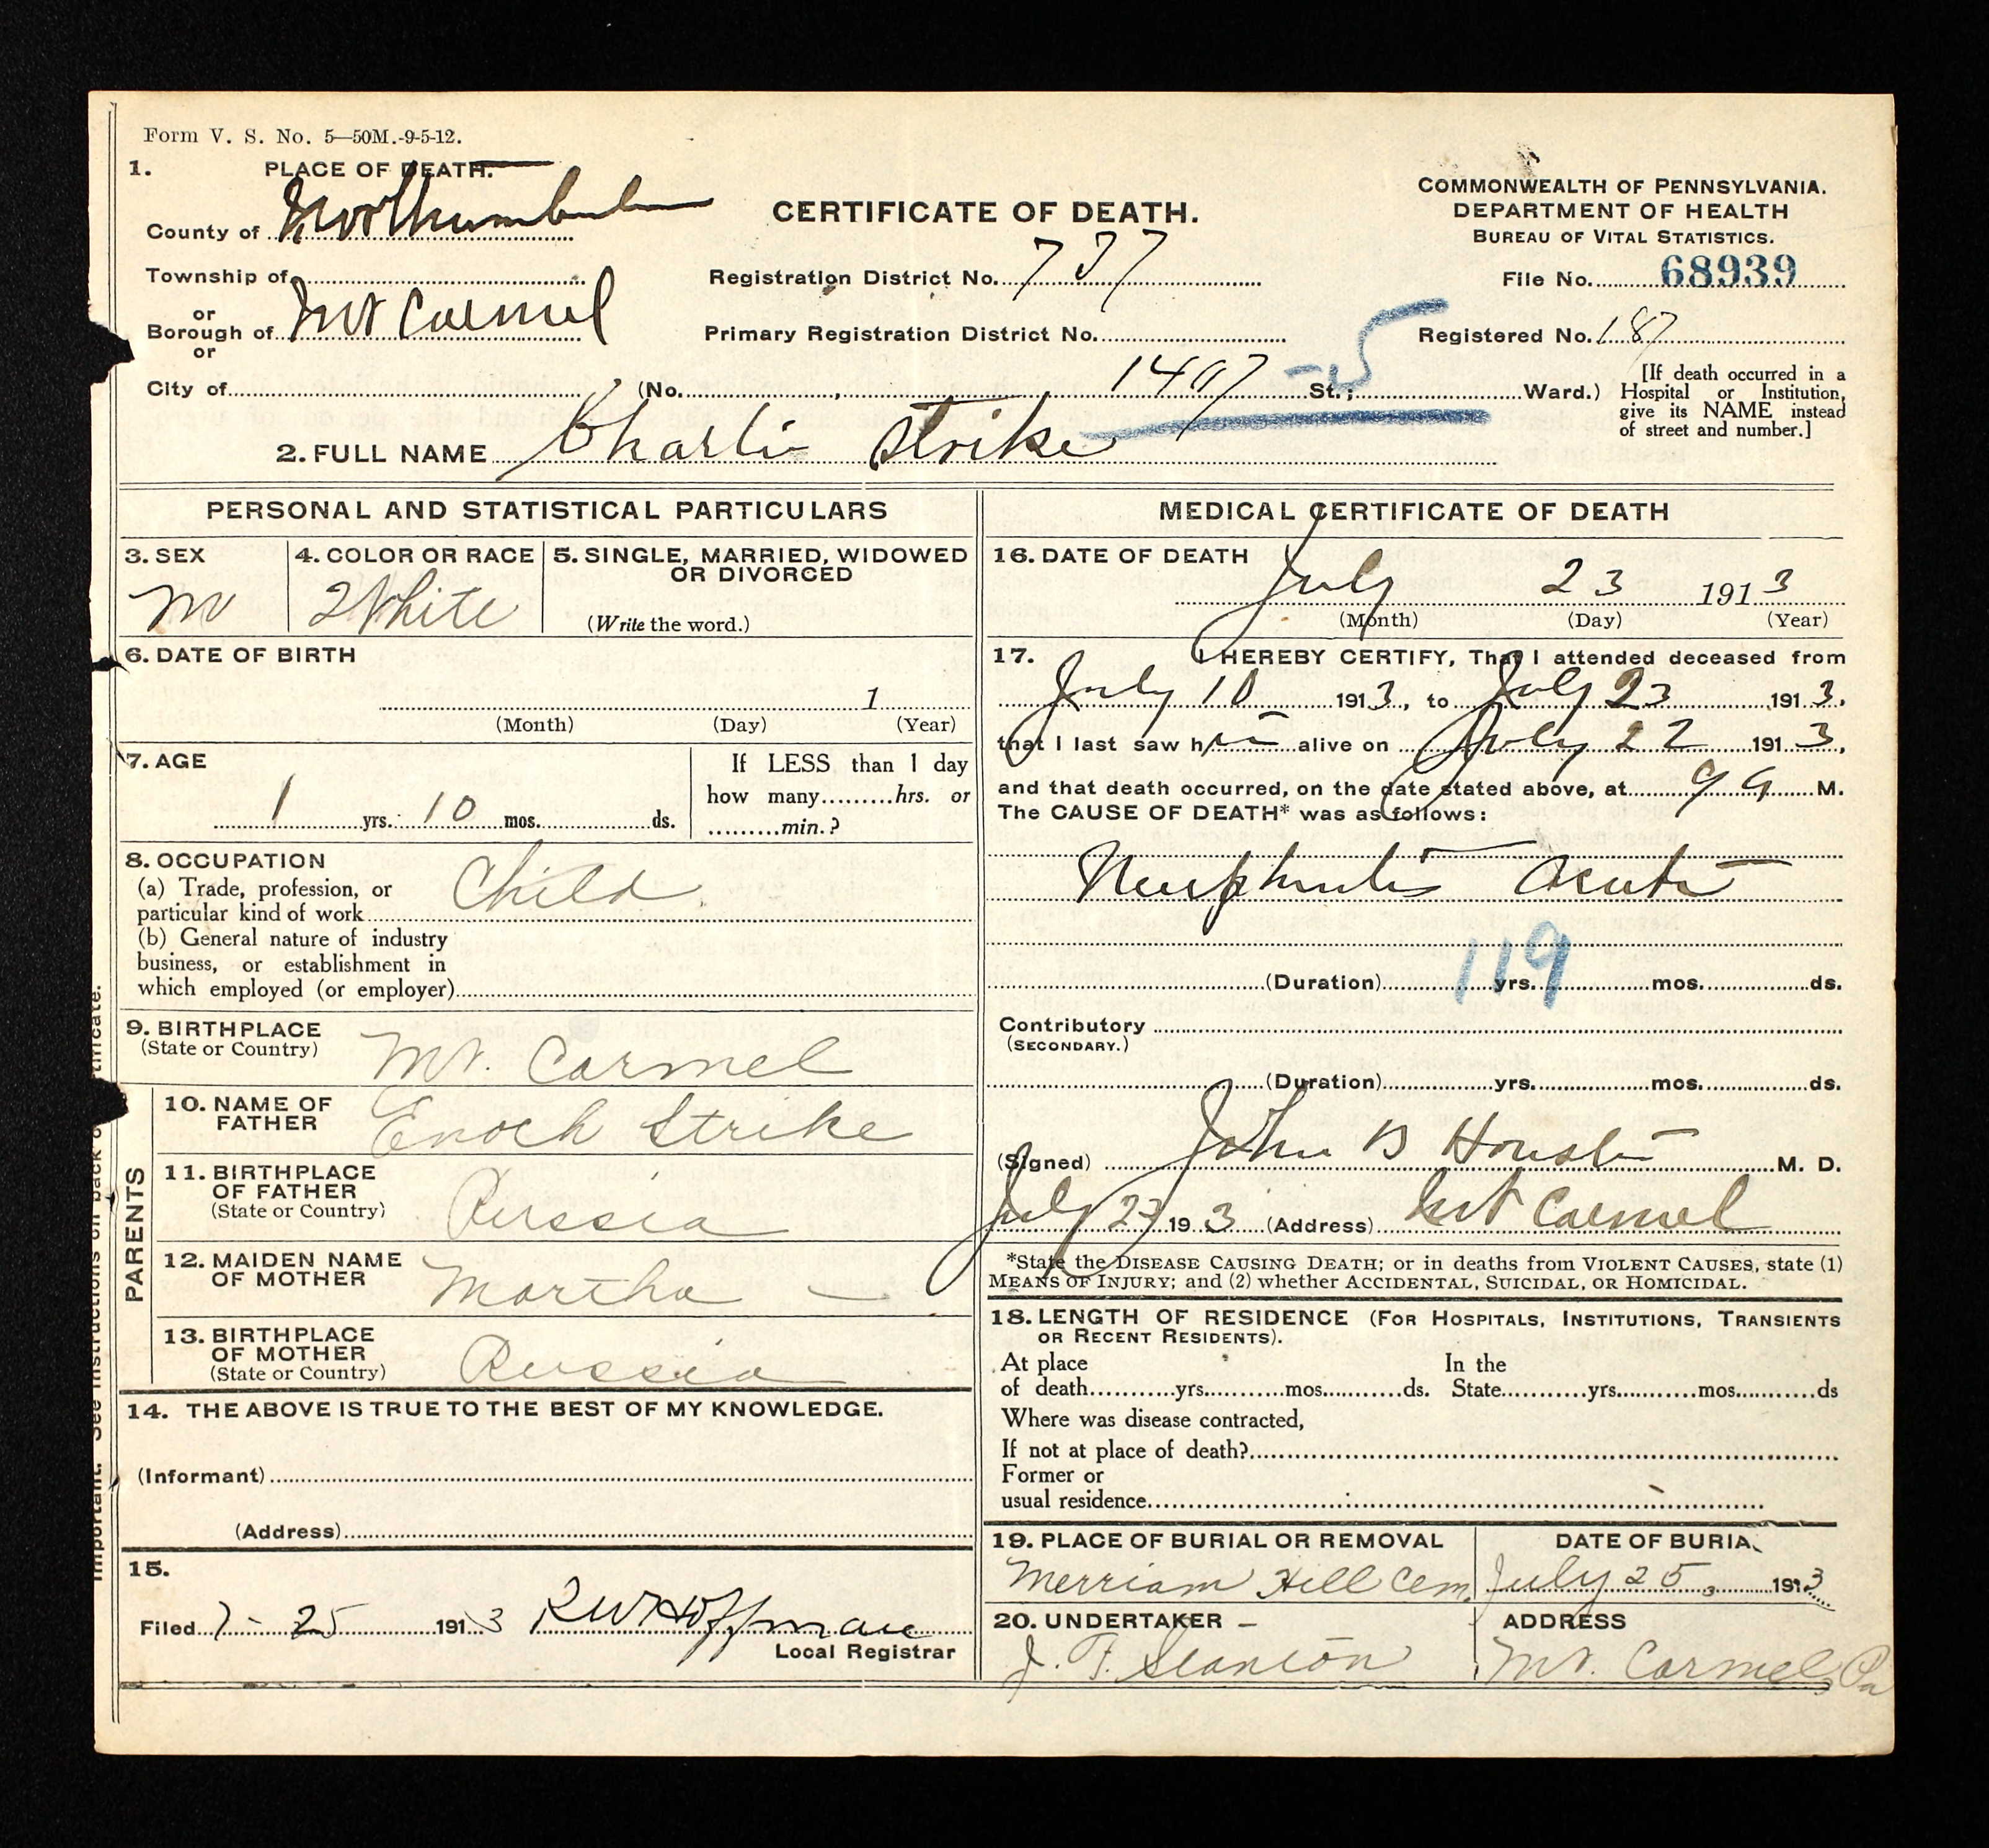 Form V. S. No. 5—50M.-9-5-12.
1. PLACE OF DEATH.
County of Northumberland
Township of
or
Borough of Mt Carmel
or
City of
CERTIFICATE OF DEATH.
Registration District No. 737
Primary Registration District No.
(No. , 1497 -5 St.; Ward.)
COMMONWEALTH OF PENNSYLVANIA.
DEPARTMENT OF HEALTH
BUREAU OF VITAL STATISTICS.
File No. 68939
Registered No. 187
[If death occurred in a
Hospital or Institution,
give its NAME instead
of street and number.]
2. FULL NAME Charlie Strike
PERSONAL AND STATISTICAL PARTICULARS
3. SEX
M
4. COLOR OR RACE
White
5. SINGLE, MARRIED, WIDOWED
OR DIVORCED
(Write the word.)
6. DATE OF BIRTH
1
(Month) (Day) (Year)
7. AGE
1 yrs. 10 mos. ds.
If LESS than 1 day
how many hrs. or
min.?
8. OCCUPATION
(a) Trade, profession, or
particular kind of work Child
(b) General nature of industry
business, or establishment in
which employed (or employer)
9. BIRTHPLACE
(State or Country) Mt. Carmel
PARENTS
10. NAME OF
FATHER Enoch Strike
11. BIRTHPLACE
OF FATHER
(State or Country) Russia
12. MAIDEN NAME
OF MOTHER Martha —
13. BIRTHPLACE
OF MOTHER
(State or Country) Russia
14. THE ABOVE IS TRUE TO THE BEST OF MY KNOWLEDGE.
(Informant)
(Address)
15.
Filed 7-25 1913 RW Hoffman
Local Registrar
MEDICAL CERTIFICATE OF DEATH
16. DATE OF DEATH
July 23 1913
(Month) (Day) (Year)
17. I HEREBY CERTIFY, That I attended deceased from
July 10 1913, to July 23 1913,
that I last saw him alive on July 22 1913,
and that death occurred, on the date stated above, at 9 A M.
The CAUSE OF DEATH* was as follows:
Neuphritis Acute
119
(Duration) yrs. mos. ds.
Contributory
(SECONDARY.)
(Duration) yrs. mos. ds.
(Signed) John B M. D.
July 23 1913 (Address) Mt Carmel
*State the DISEASE CAUSING DEATH; or in deaths from VIOLENT CAUSES, state (1)
MEANS OF INJURY; and (2) whether ACCIDENTAL, SUICIDAL, OR HOMICIDAL.
18. LENGTH OF RESIDENCE (FOR HOSPITALS, INSTITUTIONS, TRANSIENTS
OR RECENT RESIDENTS).
At place In the
of death yrs. mos. ds. State yrs. mos. ds
Where was disease contracted,
If not at place of death?
Former or
usual residence
19. PLACE OF BURIAL OR REMOVAL
Merriam Hill Cem.
DATE OF BURIAL
July 25, 1913
20. UNDERTAKER
J. F. Scanlon
ADDRESS
Mt. Carmel, Pa
Important. See instructions on back of certificate.